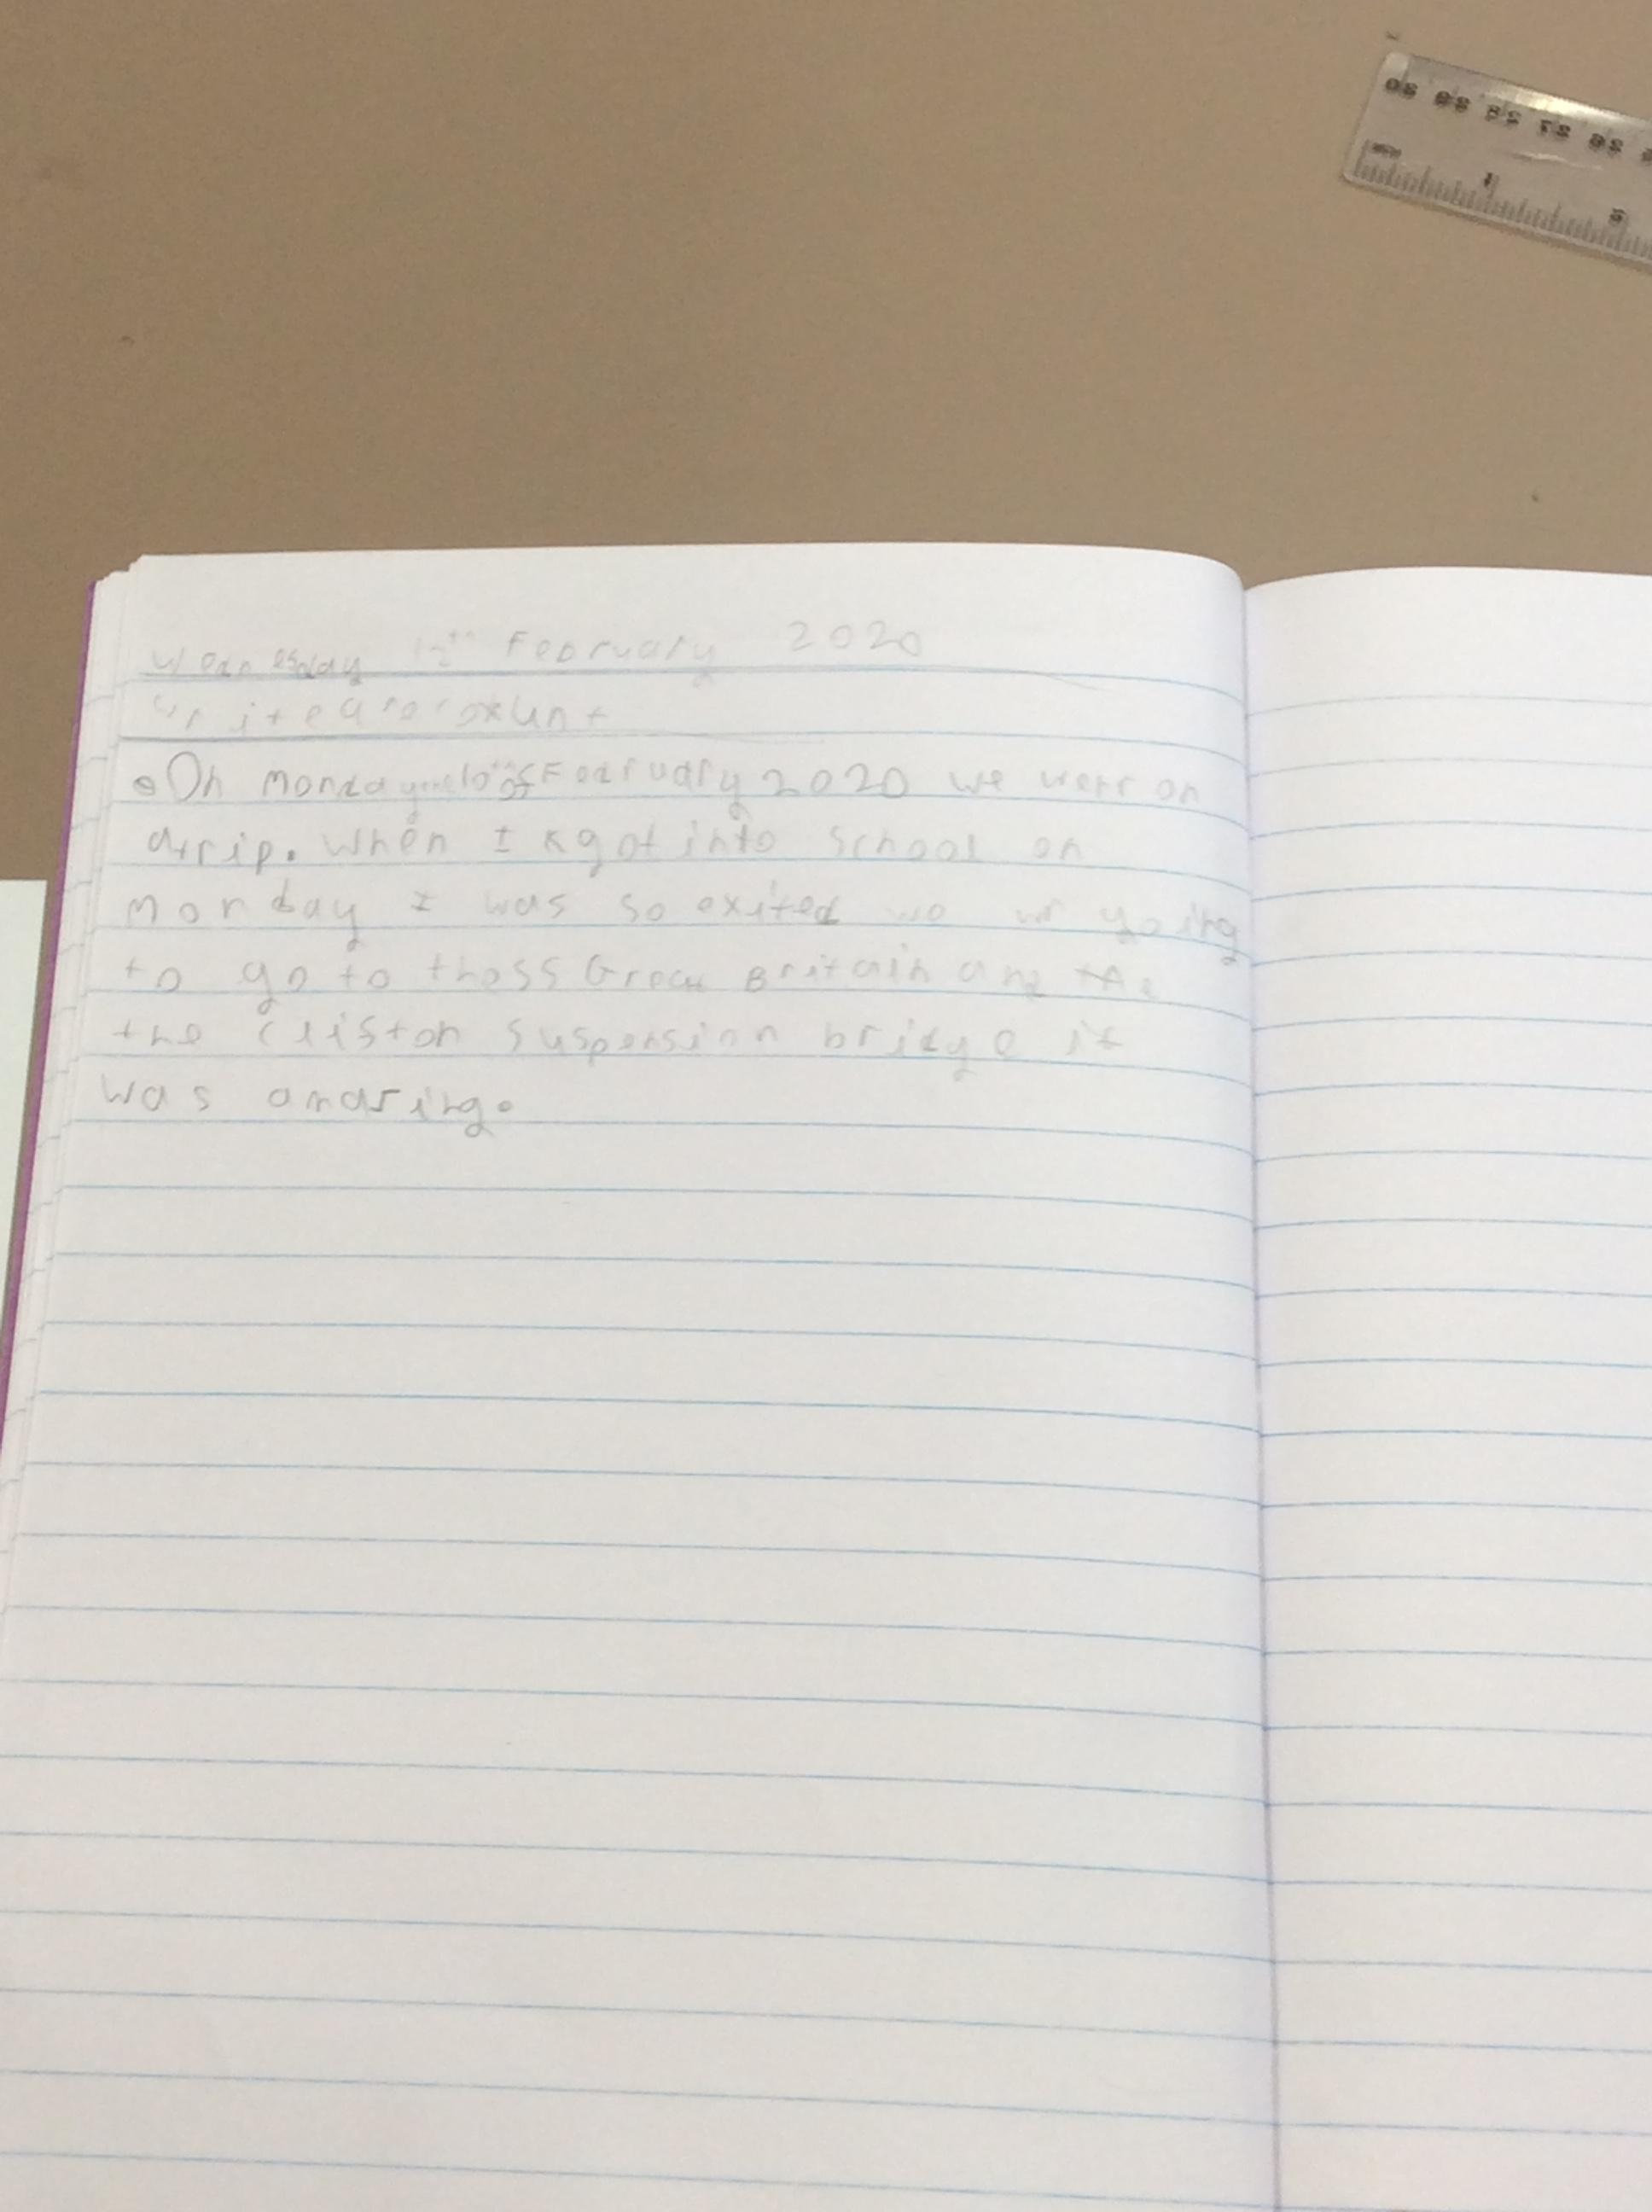 Wednesday 12th February 2020
Write a recount
On monday the 10th of February 2020 we went on
a trip. When I got into school on
monday I was so exited we wr going
to go to the ss Great Britain and the
the Clifton suspension bridge it
was amazing.